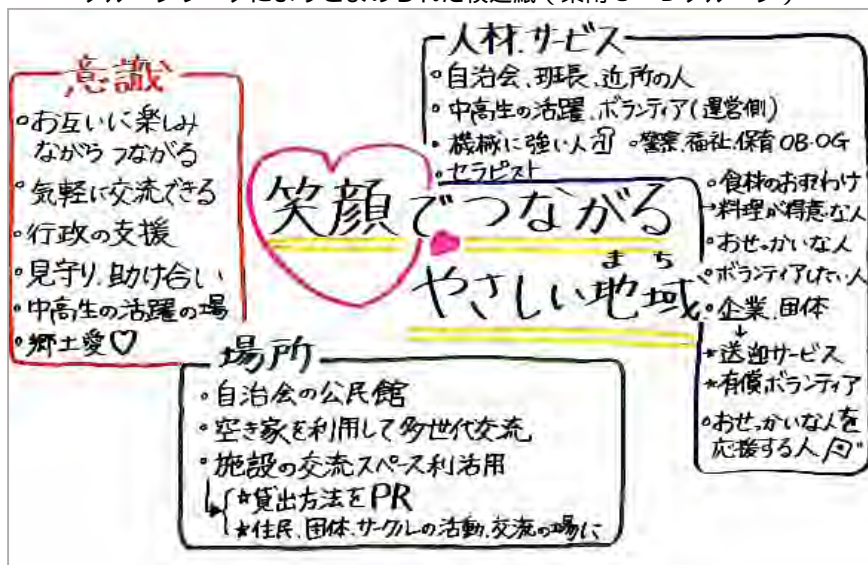 意識
・お互いに楽しみ
ながらつながる
・気軽に交流できる
・行政の支援
・見守り、助け合い
・中高生の活躍の場
・郷土愛♡
笑顔でつながる
まち
やさしい地域
人材、サービス
・自治会、班長、近所の人
・中高生の活躍、ボランティア(運営側)
・機械に強い人 ・警察、福祉、保育OB・OG
・セラピスト
・食材のおすそわけ
→料理が得意な人
・おせっかいな人
・ボランティアしたい人
・企業、団体
↓
★送迎サービス
★有償ボランティア
・おせっかいな人を
応援する人
場所
・自治会の公民館
・空き家を利用して多世代交流
・施設の交流スペース利活用
★貸出方法をPR
★住民、団体、サークルの活動、交流の場に